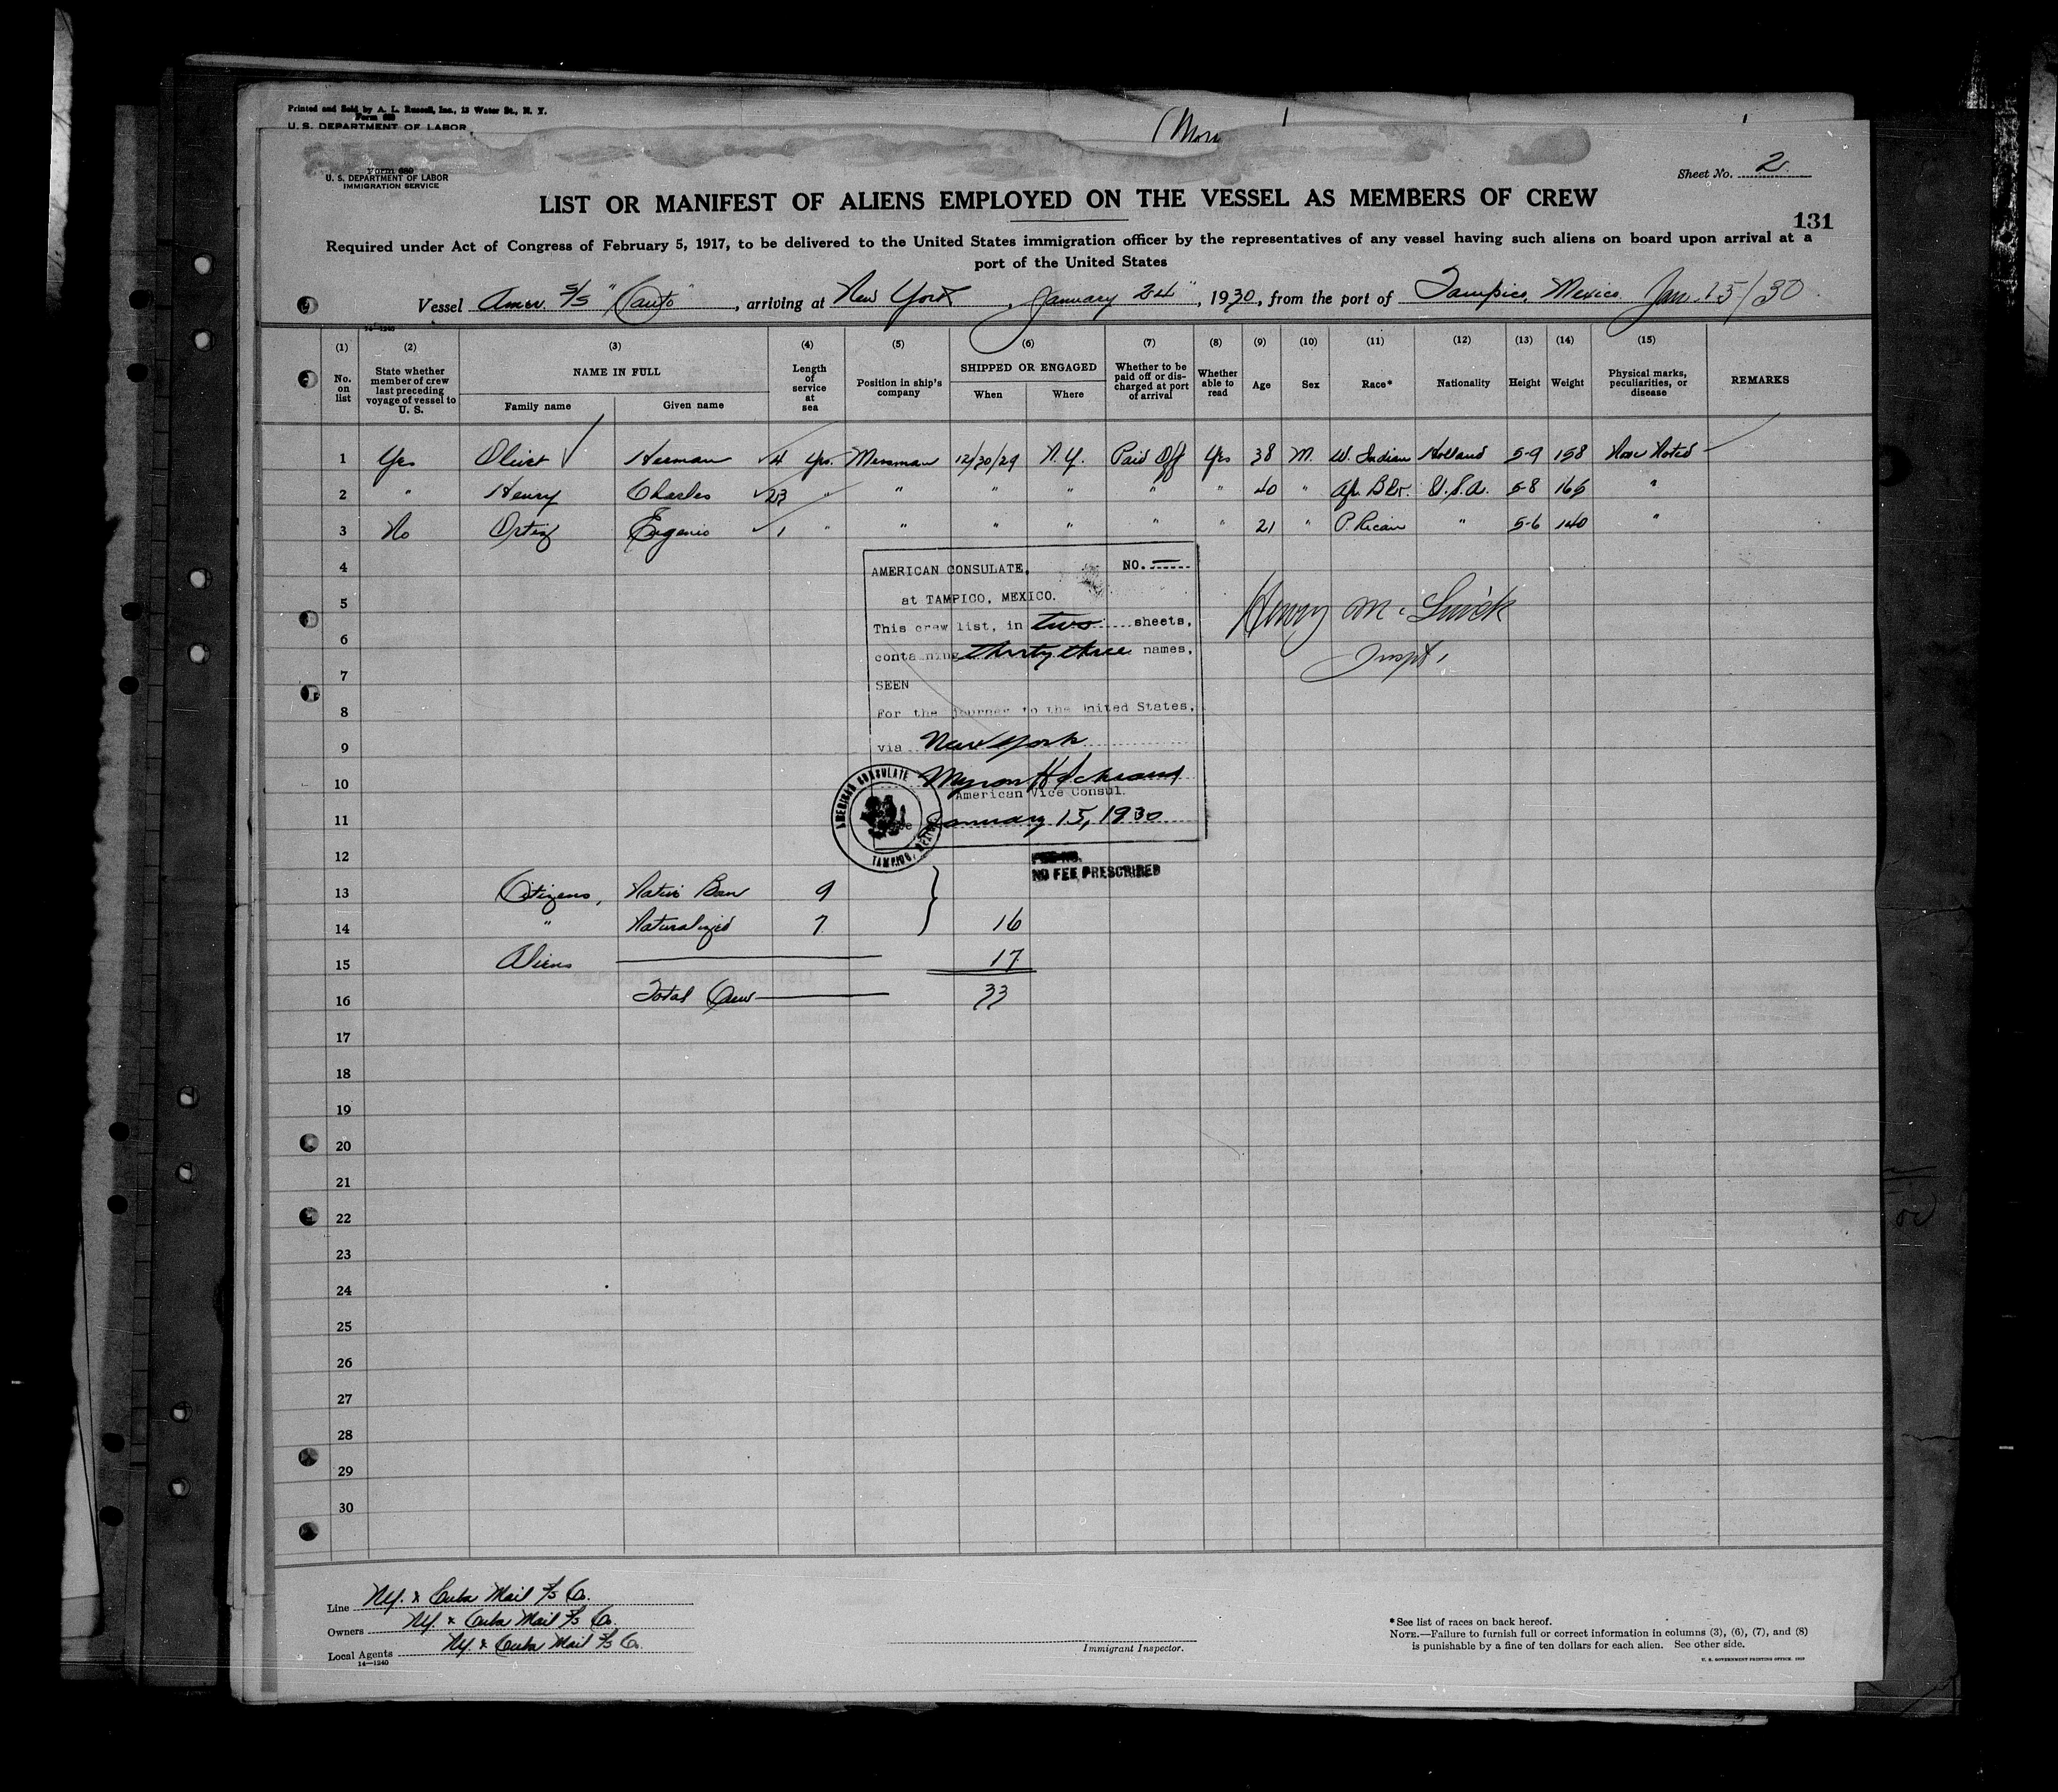 Printed and Sold by A. L. Russell, Inc., 13 Water St., N. Y.
Form 680
U. S. DEPARTMENT OF LABOR
Form 680
U. S. DEPARTMENT OF LABOR
IMMIGRATION SERVICE
Sheet No. 2
LIST OR MANIFEST OF ALIENS EMPLOYED ON THE VESSEL AS MEMBERS OF CREW
131
Required under Act of Congress of February 5, 1917, to be delivered to the United States immigration officer by the representatives of any vessel having such aliens on board upon arrival at a
port of the United States
Vessel Amer. S/S "Cauto", arriving at New York, January 24", 1930, from the port of Tampico, Mexico. Jan. 15/30
14—1240
(1) (2) (3) (4) (5) (6) (7) (8) (9) (10) (11) (12) (13) (14) (15)
No. on list
State whether member of crew last preceding voyage of vessel to U. S.
NAME IN FULL
Family name
Given name
Length of service at sea
Position in ship's company
SHIPPED OR ENGAGED
When
Where
Whether to be paid off or discharged at port of arrival
Whether able to read
Age
Sex
Race*
Nationality
Height
Weight
Physical marks, peculiarities, or disease
REMARKS
1 Yes Herman 4 Yrs. Messman 12/30/29 N.Y. Paid Off Yes 38 M. W. Indian Holland 5-9 158 None Noted
2 " Henry Charles 23 " " " " " " 40 " Af. Blk. U.S.A. 5-8 "
3 No Ortiz Eugenio 1 " " " " " " 21 " P. Rican " 5-6 140 "
4
5
6
7
8
9
10
11
12
AMERICAN CONSULATE, NO. —
at TAMPICO, MEXICO.
This crew list, in two sheets,
containing thirty three names,
SEEN
For the journey to the United States,
via New York
American Vice Consul.
January 15, 1930
AMERICAN CONSULATE
TAMPICO, MEXICO
NO FEE PRESCRIBED
Inspt.
13 Citizens, Native Born 9
14 " Naturalized 7 16
15 Aliens 17
16 Total Crew 33
17
18
19
20
21
22
23
24
25
26
27
28
29
30
Line N.Y. & Cuba Mail S/S Co.
Owners N.Y. & Cuba Mail S/S Co.
Local Agents N.Y. & Cuba Mail S/S Co.
14—1240
Immigrant Inspector.
*See list of races on back hereof.
NOTE.—Failure to furnish full or correct information in columns (3), (6), (7), and (8)
is punishable by a fine of ten dollars for each alien. See other side.